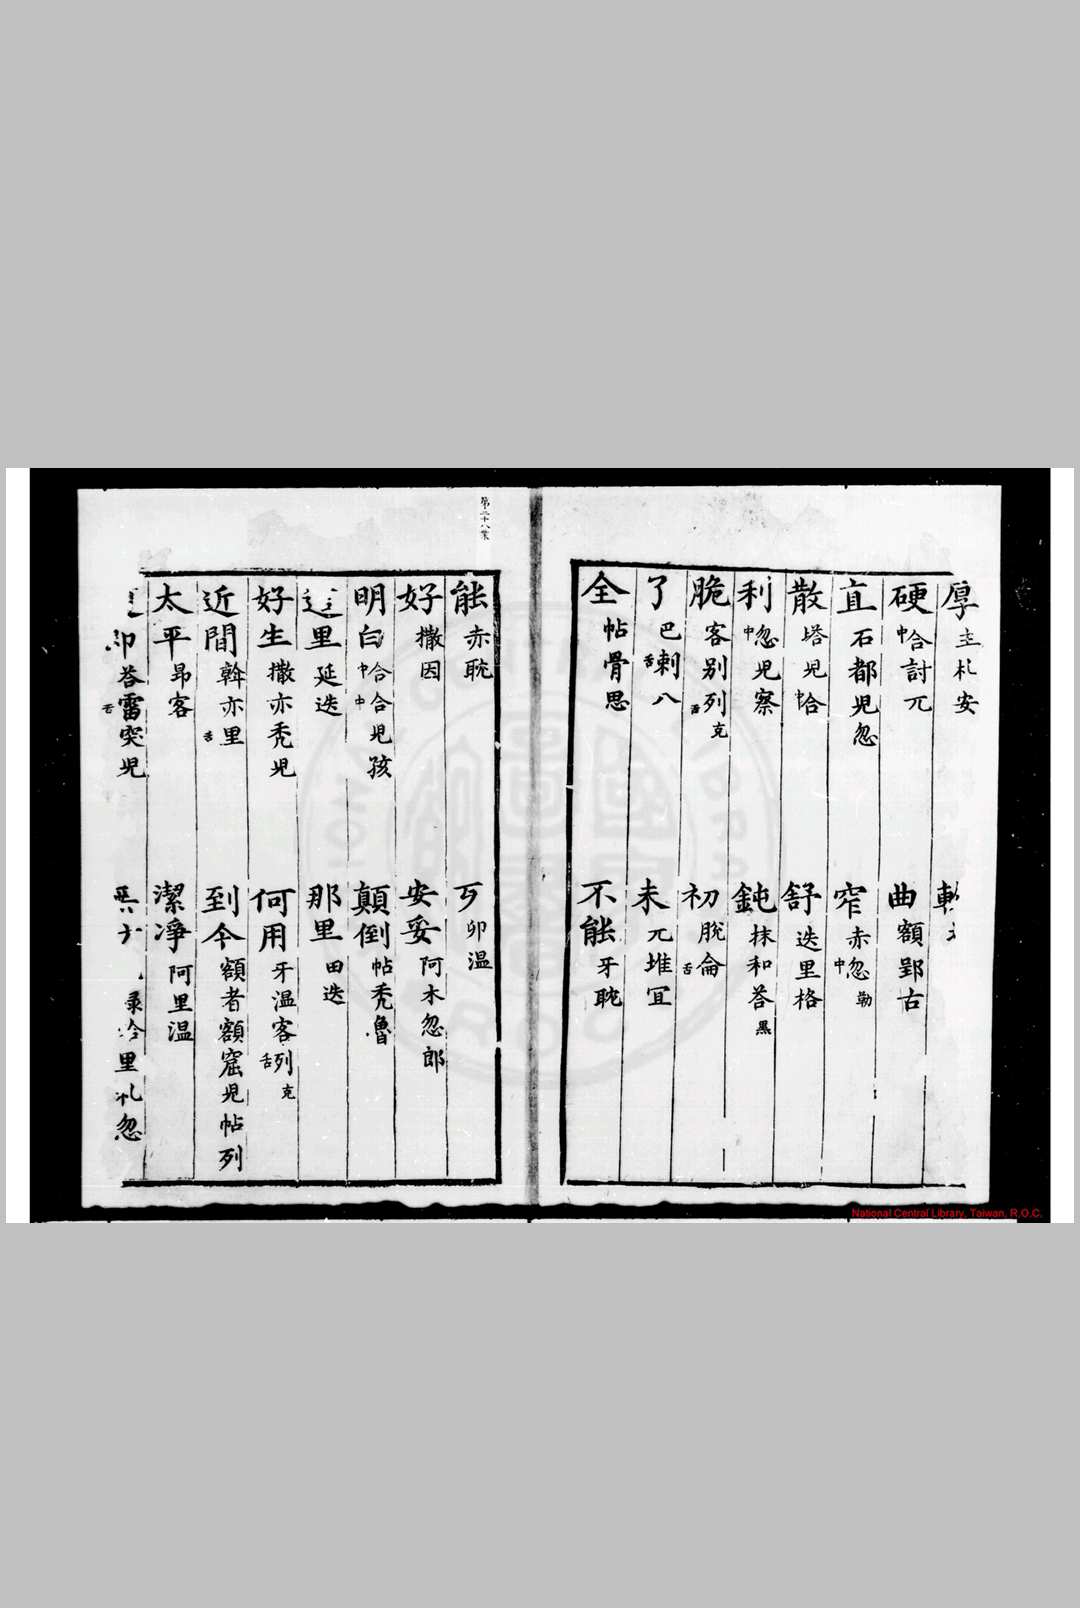 厚 圭札安
硬 中合討兀 曲 額鄞古
直 石都児忽 窄 赤中忽勒
散 塔児中合 舒 迭里格
利 中忽児察 鈍 抹和荅黑
脆 客別舌列克 初 脱舌侖
了 巴舌剌八 未 兀堆冝
全 帖骨思 不能 牙耽
第二十八葉
能 赤耽 歹 卯温
好 撒因 安妥 阿木忽郎
明白 中合中合児孩 顛倒 帖秃魯
里 延迭 那里 田迭
好生 撒亦秃児 何用 牙温客舌列克
近間 斡亦舌里 到今 額者額窟児帖列
太平 昂客 潔淨 阿里温
荅舌雷突児 里札忽
National Central Library, Taiwan, R.O.C.